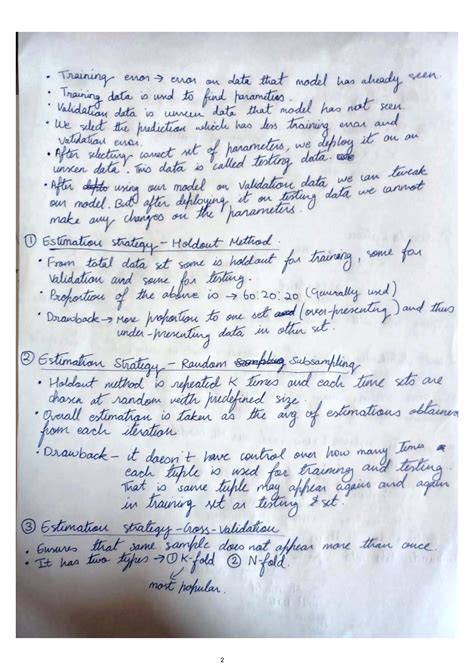 • Training error → error on data that model has already seen.
• Training data is used to find parameters.
• Validation data is unseen data that model has not seen.
• We select the prediction which has less training error and
validation error.
• After selecting correct set of parameters, we deploy it on an
unseen data. This data is called testing data.
• After using our model on Validation data, we can tweak
our model. But after deploying it on testing data we cannot
make any changes on the parameters.
① Estimation strategy - Holdout Method.
• From total data set some is holdout for training, some for
Validation and some for testing.
• Proportion of the above is → 60:20:20 (Generally used)
• Drawback → More proportion to one set (over-presenting) and thus
under-presenting data in other set.
② Estimation Strategy - Random Subsampling
• Holdout method is repeated K times and each time sets are
chosen at random with predefined size.
• Overall estimation is taken as the avg of estimations obtained
from each iteration
• Drawback - it doesn't have control over how many times
each tuple is used for training and testing.
That is same tuple may appear again and again
in training set or testing set.
③ Estimation strategy - Cross-Validation
• Ensures that same sample does not appear more than once.
• It has two types → ① K-fold ② N-fold.
most popular.
2